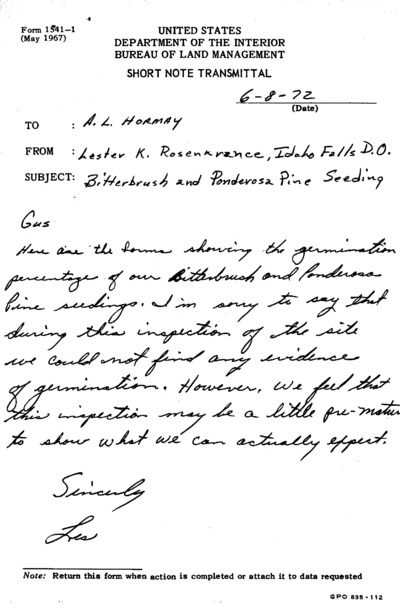 Form 1541-1
(May 1967)
UNITED STATES
DEPARTMENT OF THE INTERIOR
BUREAU OF LAND MANAGEMENT
SHORT NOTE TRANSMITTAL
6-8-72
(Date)
TO : A. L. Hormay
FROM : Lester K. Rosenkrance, Idaho Falls D.O.
SUBJECT: Bitterbrush and Ponderosa Pine Seeding
Gus
Here are the forms showing the germination
percentage of our Bitterbrush and Ponderosa
Pine seedings. I'm sorry to say that
during this inspection of the site
we could not find any evidence
of germination. However, we feel that
this inspection may be a little pre-matur
to show what we can actually expect.
Sincerly
Les
Note: Return this form when action is completed or attach it to data requested
GPO 835-112